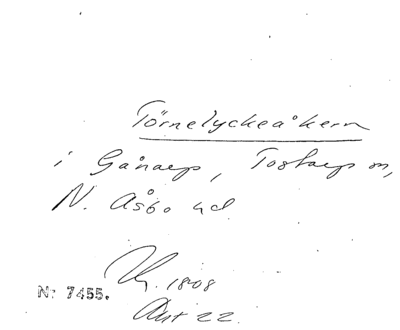 Törnelyckeåkern
i Gånarp, Tostarp sn,
N. Åsbo hd.
1808
Akt 22
Nr 7455.